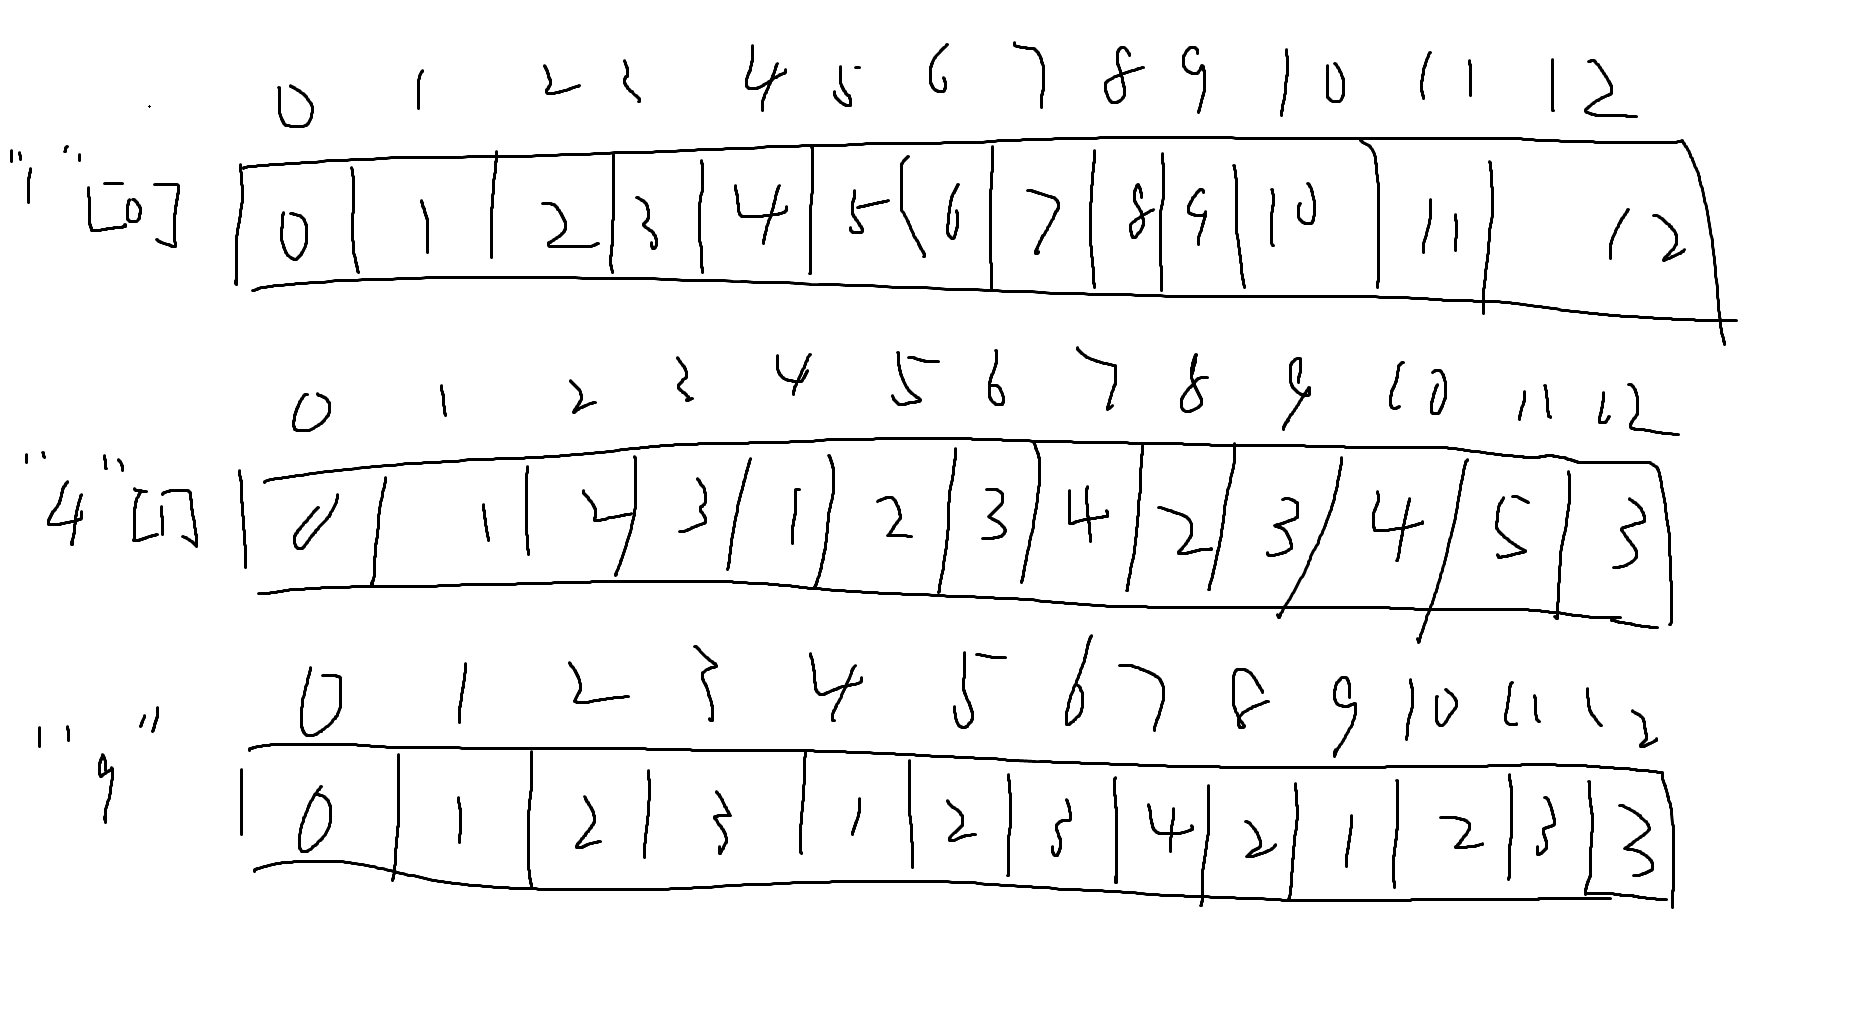 0 1 2 3 4 5 6 7 8 9 10 11 12
"1" [0] 0 1 2 3 4 5 6 7 8 9 10 11 12
0 1 2 3 4 5 6 7 8 9 10 11 12
"4" [1] 0 1 2 3 1 2 3 4 2 3 4 5 3
0 1 2 3 4 5 6 7 8 9 10 11 12
"9" 0 1 2 3 1 2 3 4 2 1 2 3 3